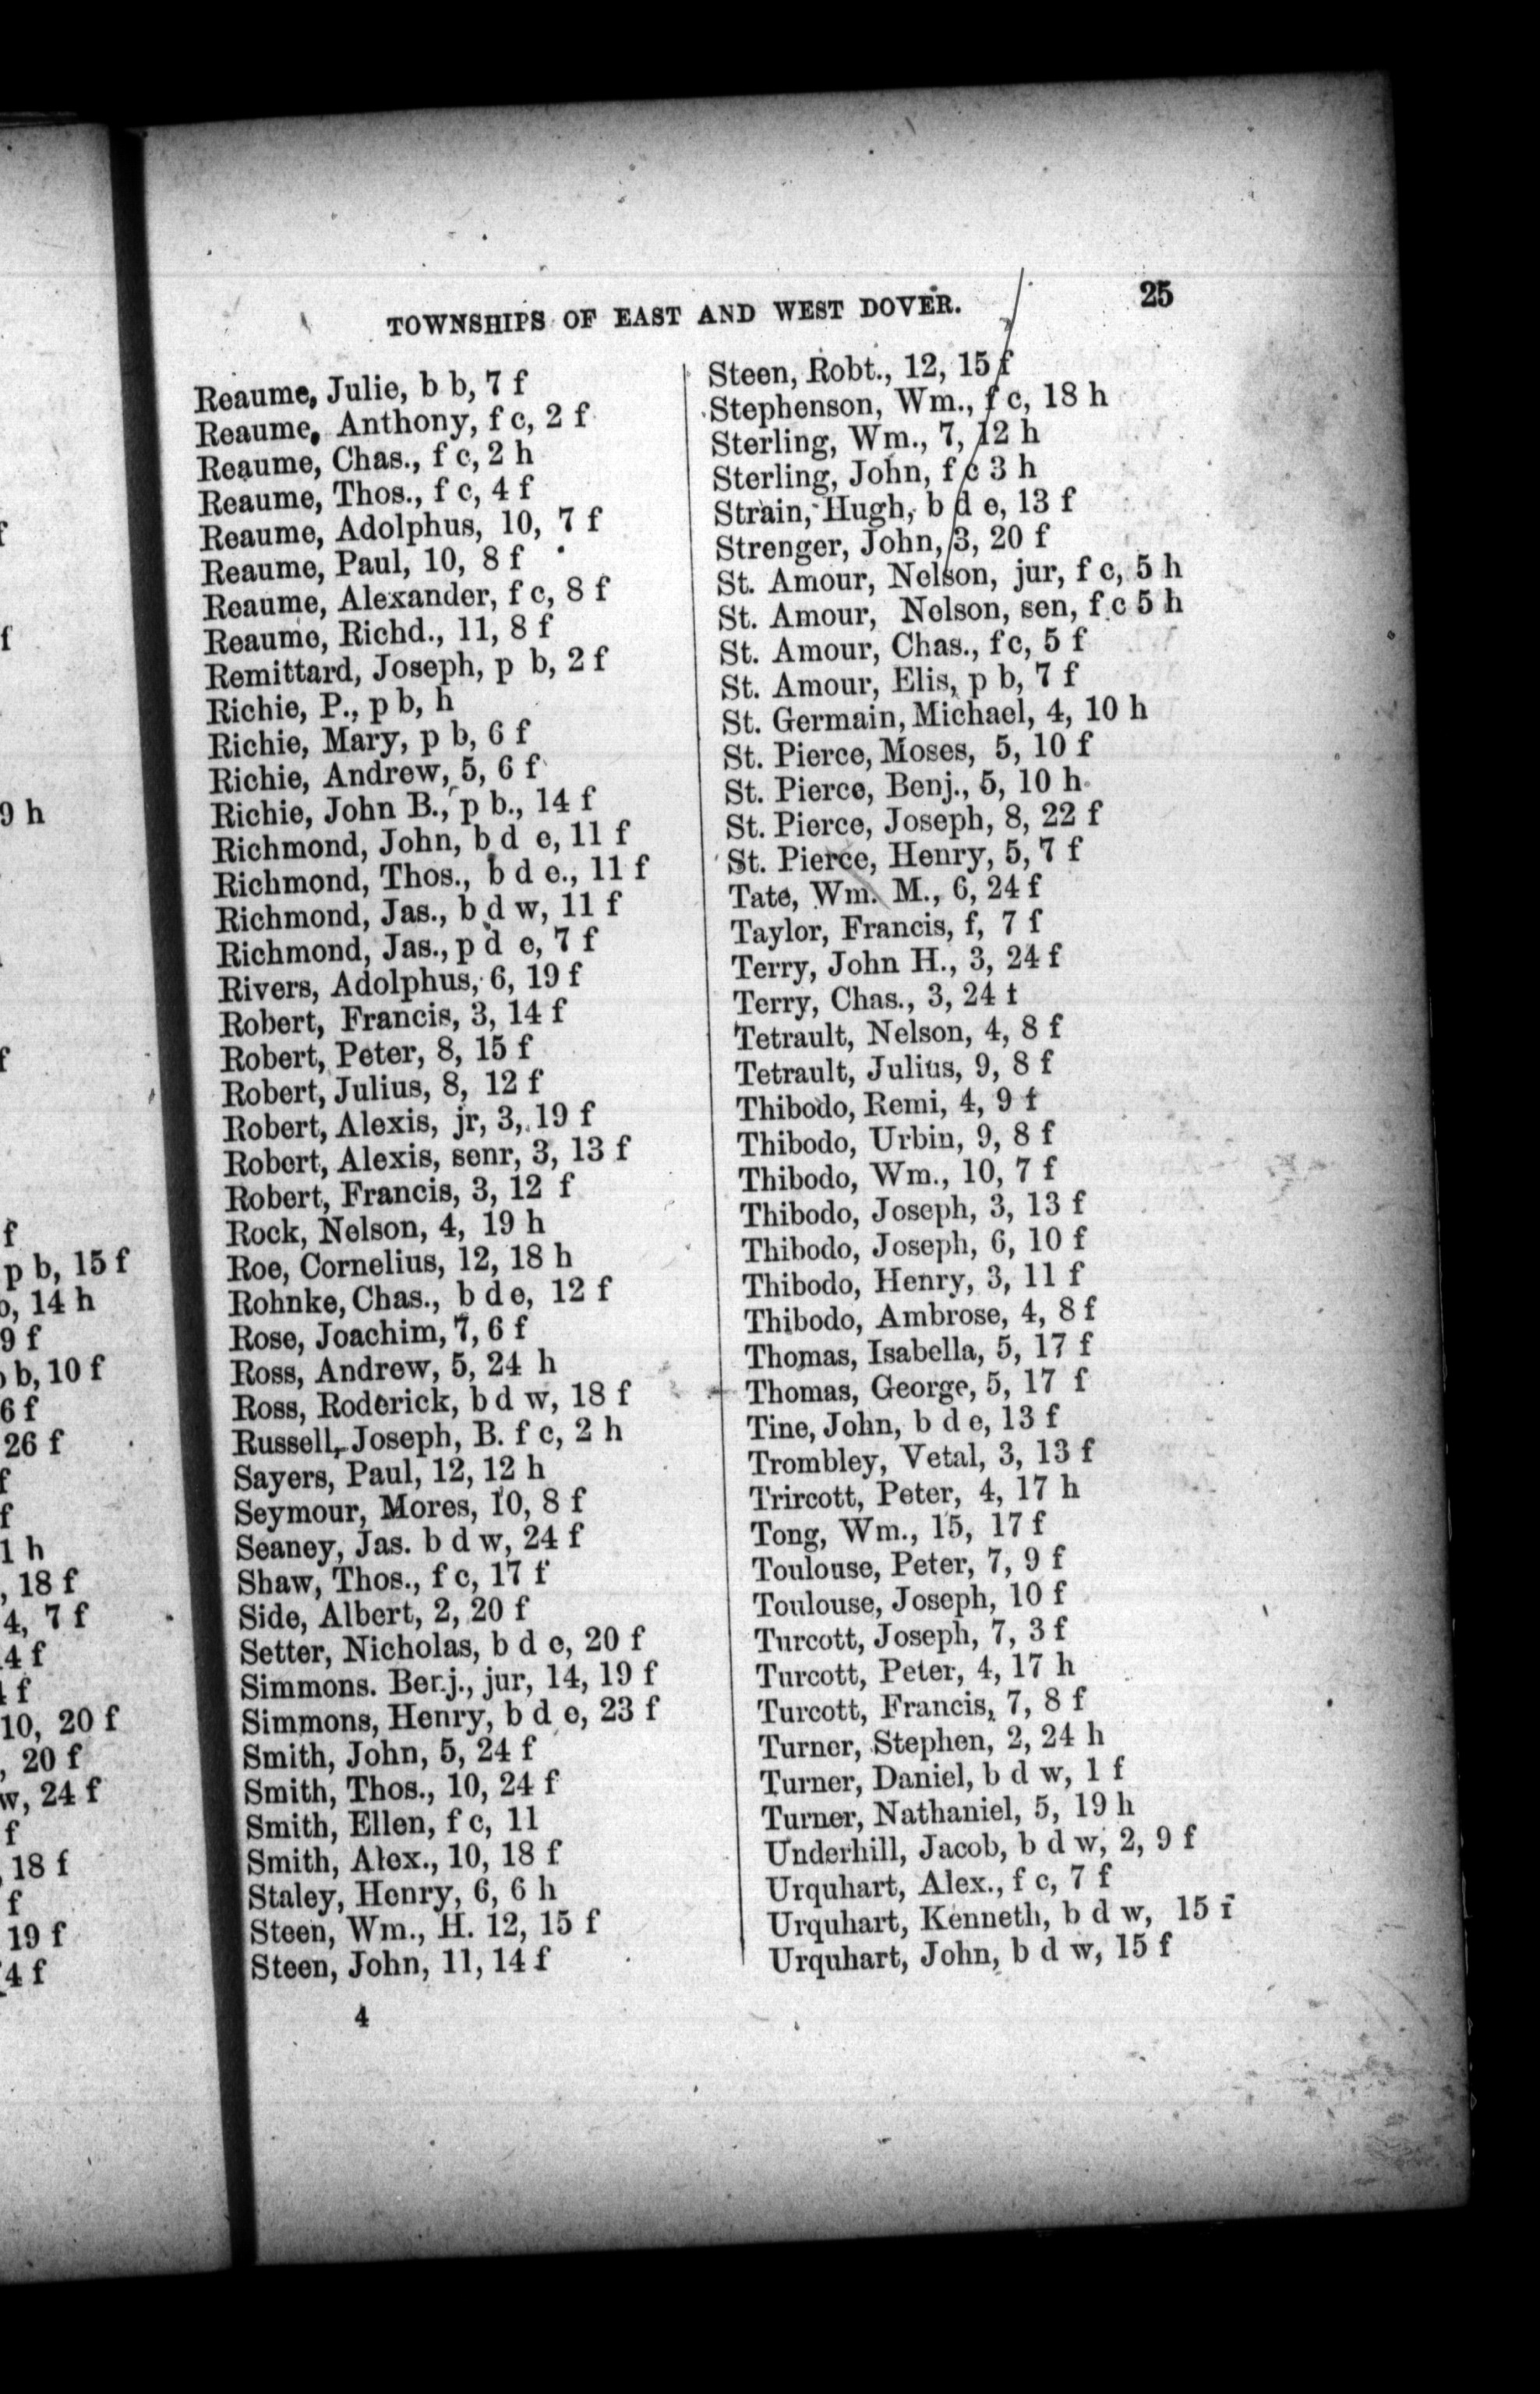 f
f
9 h
f
f
p b, 15 f
14 h
9 f
b, 10 f
6 f
26 f
f
f
1 h
, 18 f
4, 7 f
4 f
f
10, 20 f
, 20 f
w, 24 f
f
18 f
f
19 f
4 f
TOWNSHIPS OF EAST AND WEST DOVER. 25
Reaume, Julie, b b, 7 f
Reaume, Anthony, f c, 2 f
Reaume, Chas., f c, 2 h
Reaume, Thos., f c, 4 f
Reaume, Adolphus, 10, 7 f
Reaume, Paul, 10, 8 f
Reaume, Alexander, f c, 8 f
Reaume, Richd., 11, 8 f
Remittard, Joseph, p b, 2 f
Richie, P., p b, h
Richie, Mary, p b, 6 f
Richie, Andrew, 5, 6 f
Richie, John B., p b., 14 f
Richmond, John, b d e, 11 f
Richmond, Thos., b d e., 11 f
Richmond, Jas., b d w, 11 f
Richmond, Jas., p d e, 7 f
Rivers, Adolphus, 6, 19 f
Robert, Francis, 3, 14 f
Robert, Peter, 8, 15 f
Robert, Julius, 8, 12 f
Robert, Alexis, jr, 3, 19 f
Robert, Alexis, senr, 3, 13 f
Robert, Francis, 3, 12 f
Rock, Nelson, 4, 19 h
Roe, Cornelius, 12, 18 h
Rohnke, Chas., b d e, 12 f
Rose, Joachim, 7, 6 f
Ross, Andrew, 5, 24 h
Ross, Roderick, b d w, 18 f
Russell, Joseph, B. f c, 2 h
Sayers, Paul, 12, 12 h
Seymour, Mores, 10, 8 f
Seaney, Jas. b d w, 24 f
Shaw, Thos., f c, 17 f
Side, Albert, 2, 20 f
Setter, Nicholas, b d e, 20 f
Simmons. Benj., jur, 14, 19 f
Simmons, Henry, b d e, 23 f
Smith, John, 5, 24 f
Smith, Thos., 10, 24 f
Smith, Ellen, f c, 11
Smith, Alex., 10, 18 f
Staley, Henry, 6, 6 h
Steen, Wm., H. 12, 15 f
Steen, John, 11, 14 f
4
Steen, Robt., 12, 15 f
Stephenson, Wm., f c, 18 h
Sterling, Wm., 7, 12 h
Sterling, John, f c 3 h
Strain, Hugh, b d e, 13 f
Strenger, John, 3, 20 f
St. Amour, Nelson, jur, f c, 5 h
St. Amour, Nelson, sen, f c 5 h
St. Amour, Chas., f c, 5 f
St. Amour, Elis, p b, 7 f
St. Germain, Michael, 4, 10 h
St. Pierce, Moses, 5, 10 f
St. Pierce, Benj., 5, 10 h
St. Pierce, Joseph, 8, 22 f
St. Pierce, Henry, 5, 7 f
Tate, Wm. M., 6, 24 f
Taylor, Francis, f, 7 f
Terry, John H., 3, 24 f
Terry, Chas., 3, 24 t
Tetrault, Nelson, 4, 8 f
Tetrault, Julius, 9, 8 f
Thibodo, Remi, 4, 9 f
Thibodo, Urbin, 9, 8 f
Thibodo, Wm., 10, 7 f
Thibodo, Joseph, 3, 13 f
Thibodo, Joseph, 6, 10 f
Thibodo, Henry, 3, 11 f
Thibodo, Ambrose, 4, 8 f
Thomas, Isabella, 5, 17 f
Thomas, George, 5, 17 f
Tine, John, b d e, 13 f
Trombley, Vetal, 3, 13 f
Trircott, Peter, 4, 17 h
Tong, Wm., 15, 17 f
Toulouse, Peter, 7, 9 f
Toulouse, Joseph, 10 f
Turcott, Joseph, 7, 3 f
Turcott, Peter, 4, 17 h
Turcott, Francis, 7, 8 f
Turner, Stephen, 2, 24 h
Turner, Daniel, b d w, 1 f
Turner, Nathaniel, 5, 19 h
Underhill, Jacob, b d w, 2, 9 f
Urquhart, Alex., f c, 7 f
Urquhart, Kenneth, b d w, 15 f
Urquhart, John, b d w, 15 f